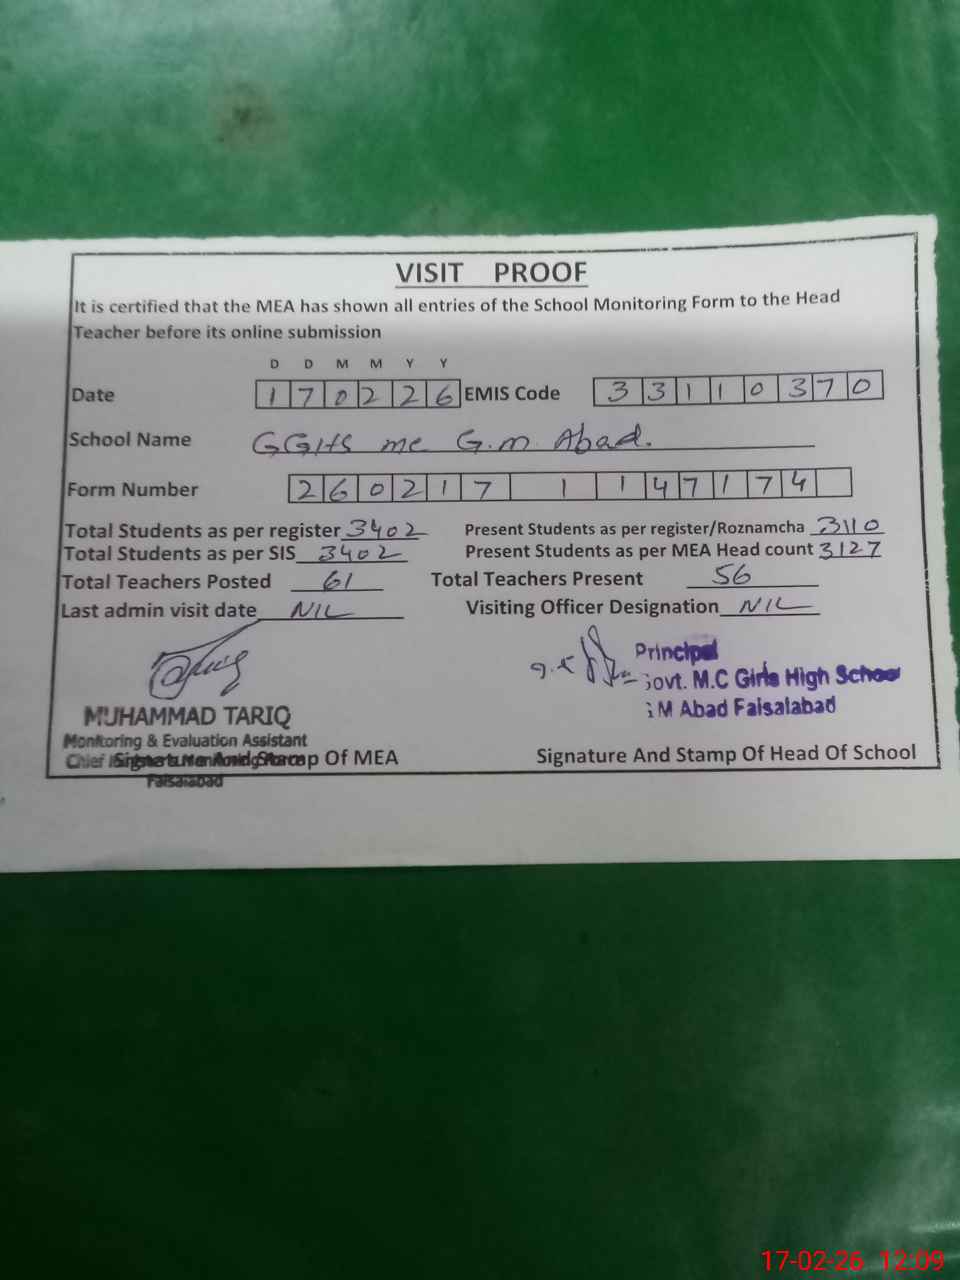 VISIT PROOF
It is certified that the MEA has shown all entries of the School Monitoring Form to the Head
Teacher before its online submission
D D M M Y Y
Date 170226 EMIS Code 33110370
School Name GGHS mc G.m. Abad.
Form Number 260217 1 147174
Total Students as per register 3402 Present Students as per register/Roznamcha 3110
Total Students as per SIS 3402 Present Students as per MEA Head count 3127
Total Teachers Posted 61 Total Teachers Present 56
Last admin visit date NIL Visiting Officer Designation NIL
Principal
Govt. M.C Girls High School
G M Abad Faisalabad
MUHAMMAD TARIQ
Monitoring & Evaluation Assistant
Signature And Stamp Of MEA Signature And Stamp Of Head Of School
Faisalabad
17-02-26 12:09